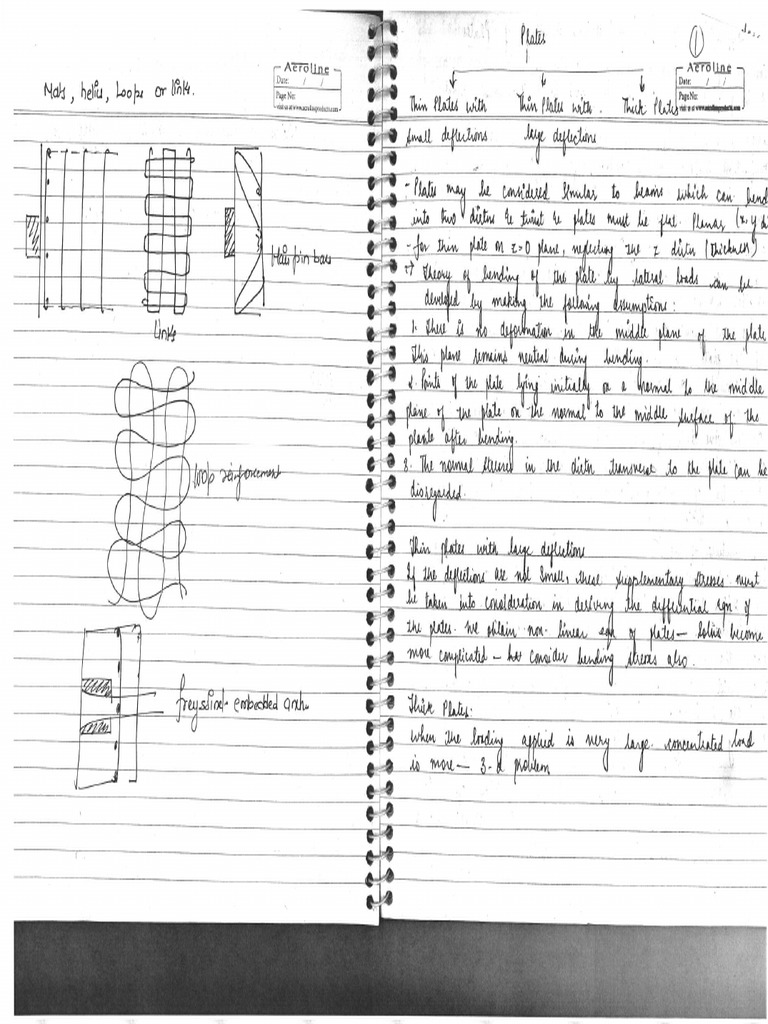 Aeroline
Date: / /
Page No:
Mats, helix, Loops or links.
Hair pin bars
Links
Loop reinforcement
embedded anch.
Plates
1
Aeroline
Date: / /
Page No:
Thin Plates with Thin Plates with. Thick Plates
small deflections large deflections
- Plates may be considered similar to beams which can bend
into two dirctns & twist & plates must be flat. Planar (x y di
- for thin plate on z=0 plane, neglecting the z dirctn (thickness)
Theory of bending of the plate by lateral loads can be
developed by making the following assumptions:
1. There is no deformation in the middle plane of the plate
This plane remains neutral during bending.
2. Points of the plate lying initially on a normal to the middle
plane of the plate on the normal to the middle surface of the
plate after bending.
3. The normal stresses in the dirctn transverse to the plate can be
disregarded.
Thin plates with large deflections
If the deflections are not small, these supplementary stresses must
be taken into consideration in deriving the differential eqn of
the plates. We obtain non-linear eqn of plates — Solns become
more complicated — consider bending stresses also.
Thick Plates.
When the loading applied is very large. concentrated load
is more — 3-d problem